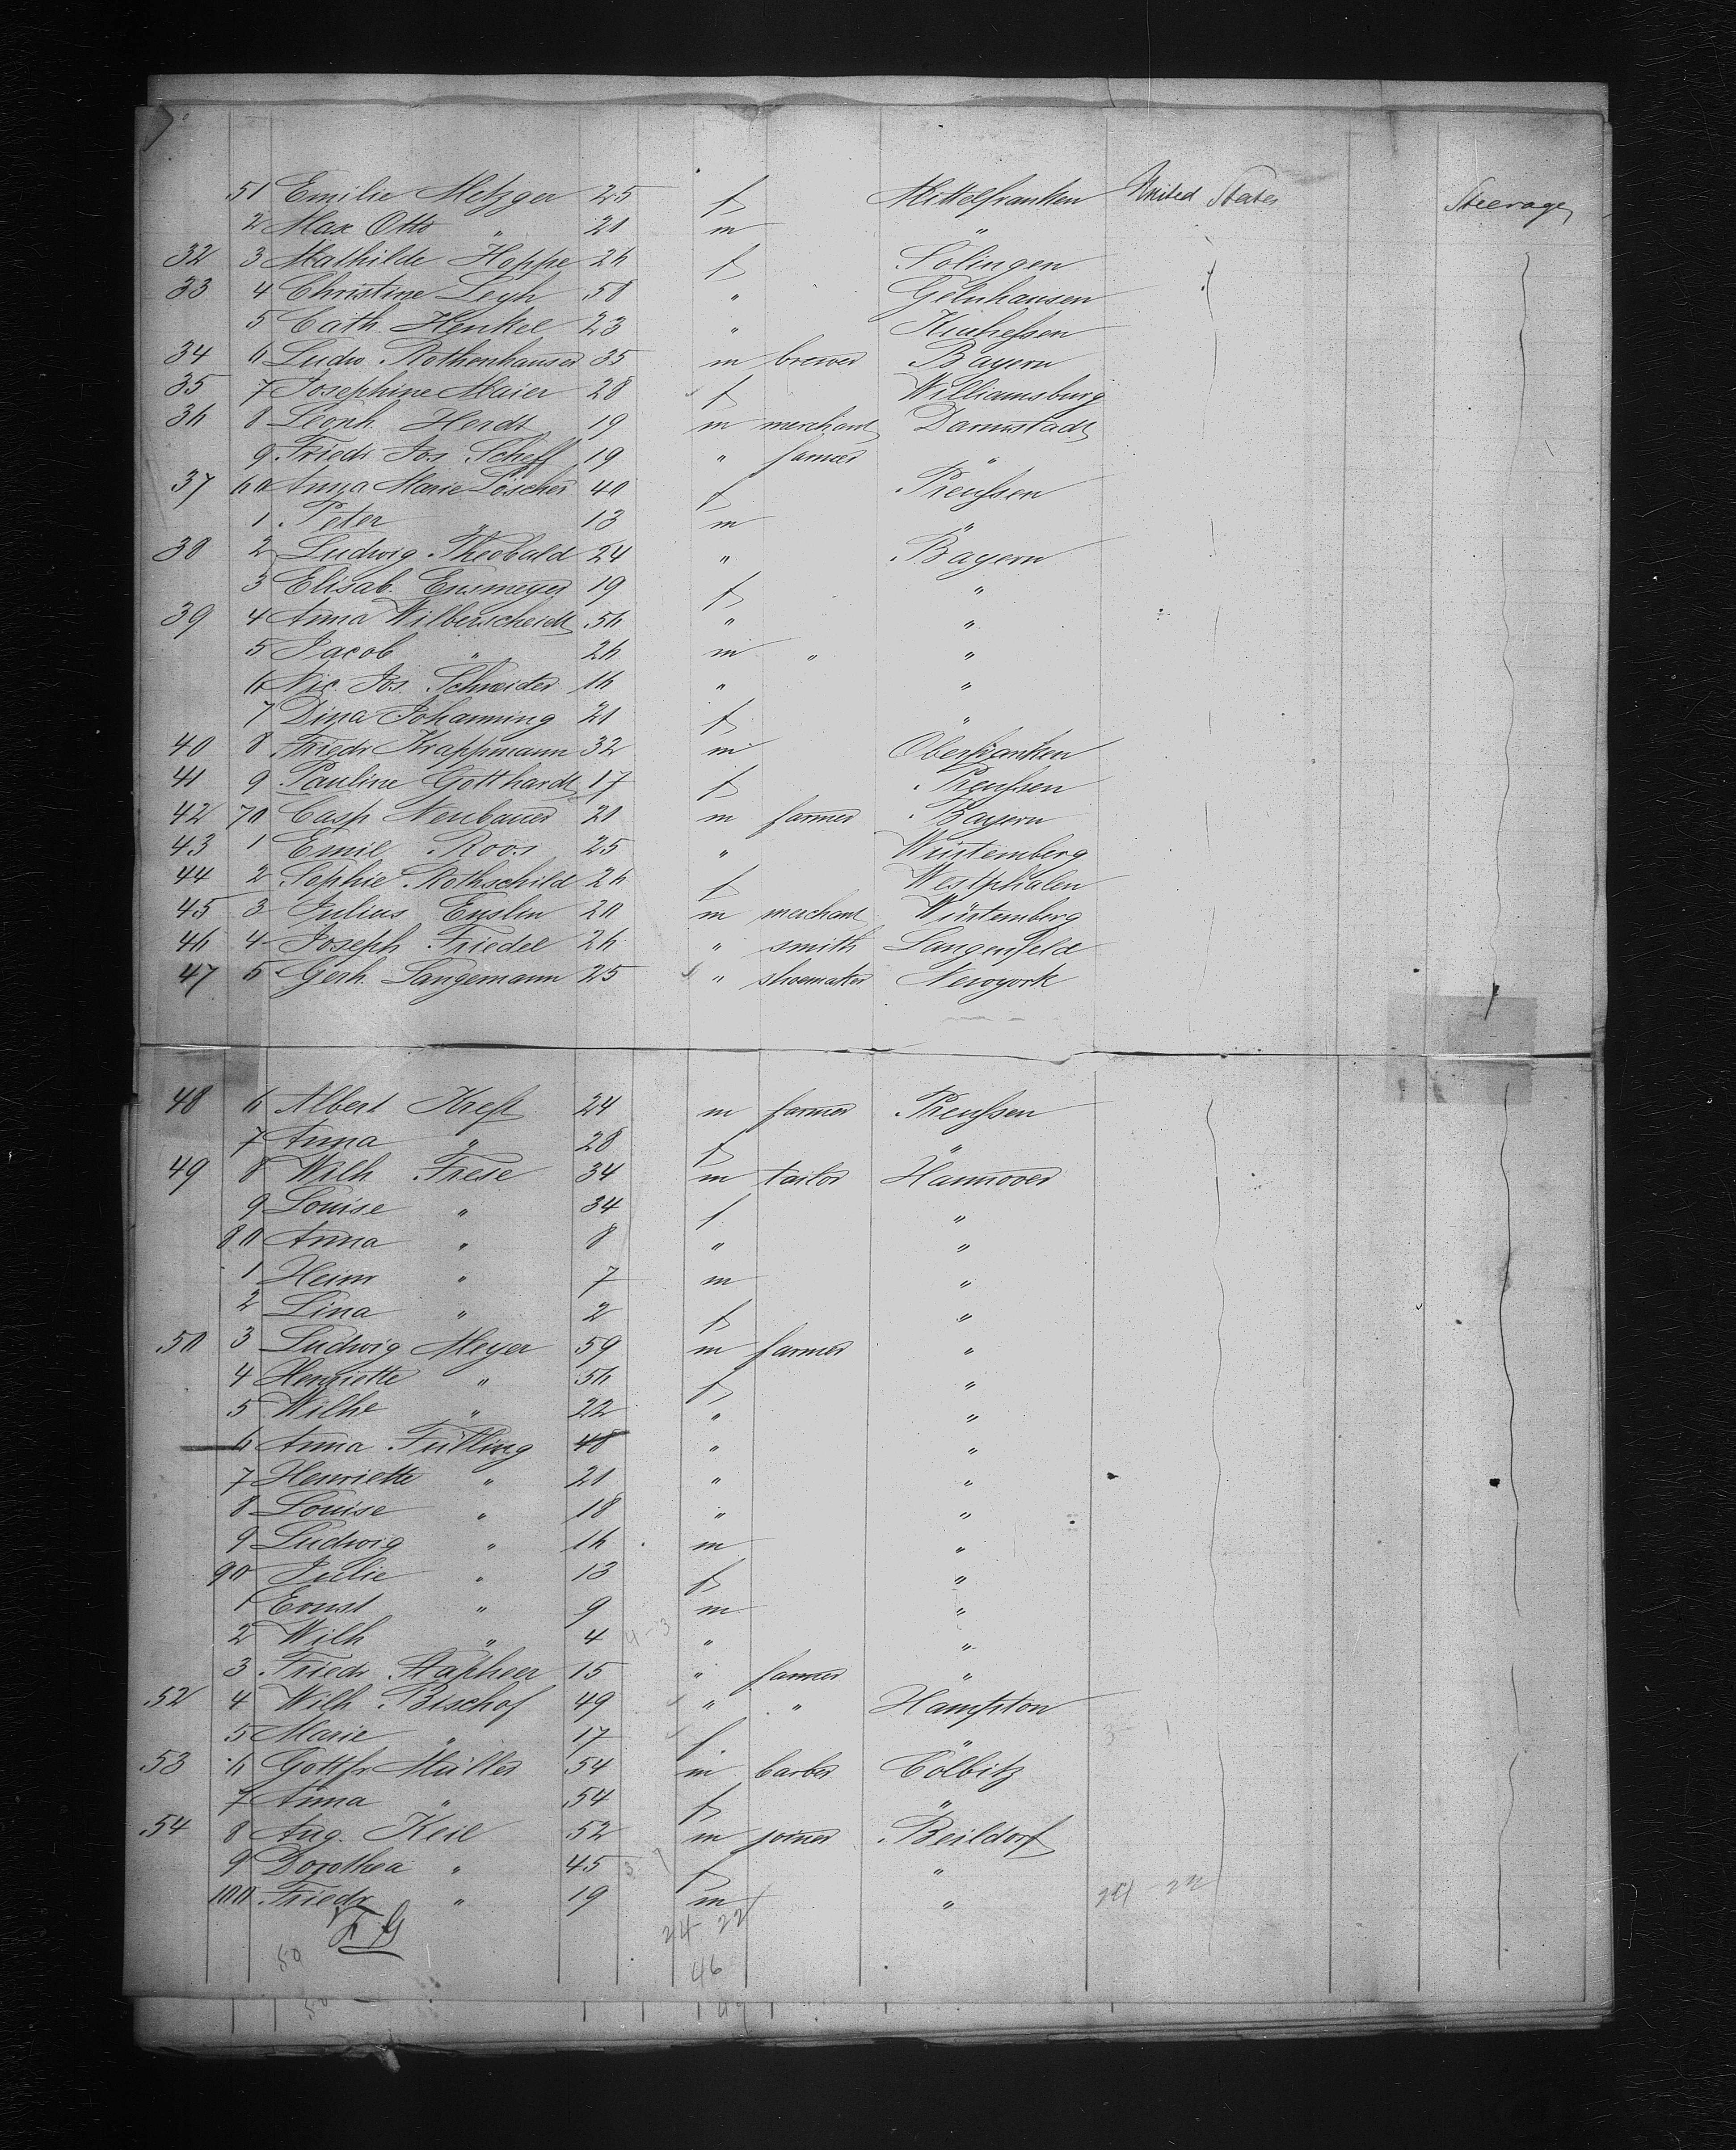 51 Emilie Metzger 25 f Mittelfranken United States Steerage
2 Max Otto " 21 m "
32 3 Mathilde Hoppe 26 f Solingen
33 4 Christine Legh 58 " Gelnhausen
5 Cath. Henkel 23 " Kurhessen
34 6 Ludw. Rothenhauser 35 m brewer Bayern
35 7 Josephine Maier 28 f Williamsburg
36 8 Leonh. Herdt 19 m merchant Darmstadt
9 Friedr Jos. Scheff 19 " farmer "
37 60 Anna Marie Löscher 40 f Preußen
1 Peter " 13 m "
38 2 Ludwig Theobald 24 " Bayern
3 Elisab. Ensmeyer 19 f "
39 4 Anna Wilberscheidt 56 " "
5 Jacob " 26 m " "
6 Nic. Jos. Schneider 16 " "
7 Dina Johanning 21 f "
40 8 Friedr Krappmann 32 m Oberfranken
41 9 Pauline Gotthardt 17 f Preußen
42 70 Casp Neubauer 21 m farmer Bayern
43 1 Emil Roos 25 " Würtemberg
44 2 Sophie Rothschild 26 f Westphalen
45 3 Julius Enslin 20 m merchant Würtemberg
46 4 Joseph Friedel 26 " smith Langenfeld
47 5 Gerh. Langemann 25 " shoemaker Newyork
48 6 Albert Kreft 24 m farmer Preußen
7 Anna " 28 f "
49 8 Wilh Frese 34 m tailor Hannover
9 Louise " 34 f "
80 Anna " 8 " "
1 Heinr " 7 m "
2 Lina " 2 f "
50 3 Ludwig Meyer 59 m farmer "
4 Henriette " 56 f "
5 Wilhe " 22 " "
6 Anna Fütling 48 " "
7 Henriette " 21 " "
8 Louise " 18 " "
9 Ludwig " 16 m "
90 Julie " 13 f "
1 Ernst " 9 m "
2 Wilh " 4 4-3 " "
3 Friedr. 15 " farmer "
52 4 Wilh. Bischof 49 " " Hampton
5 Marie " 17 f "
53 6 Gottfr Müller 54 m barber Cölbitz
7 Anna " 54 f "
54 8 Aug. Keil 52 m joiner Beildorf
9 Dorothea " 45 f "
100 Friedr " 19 m "
24 22
50
46